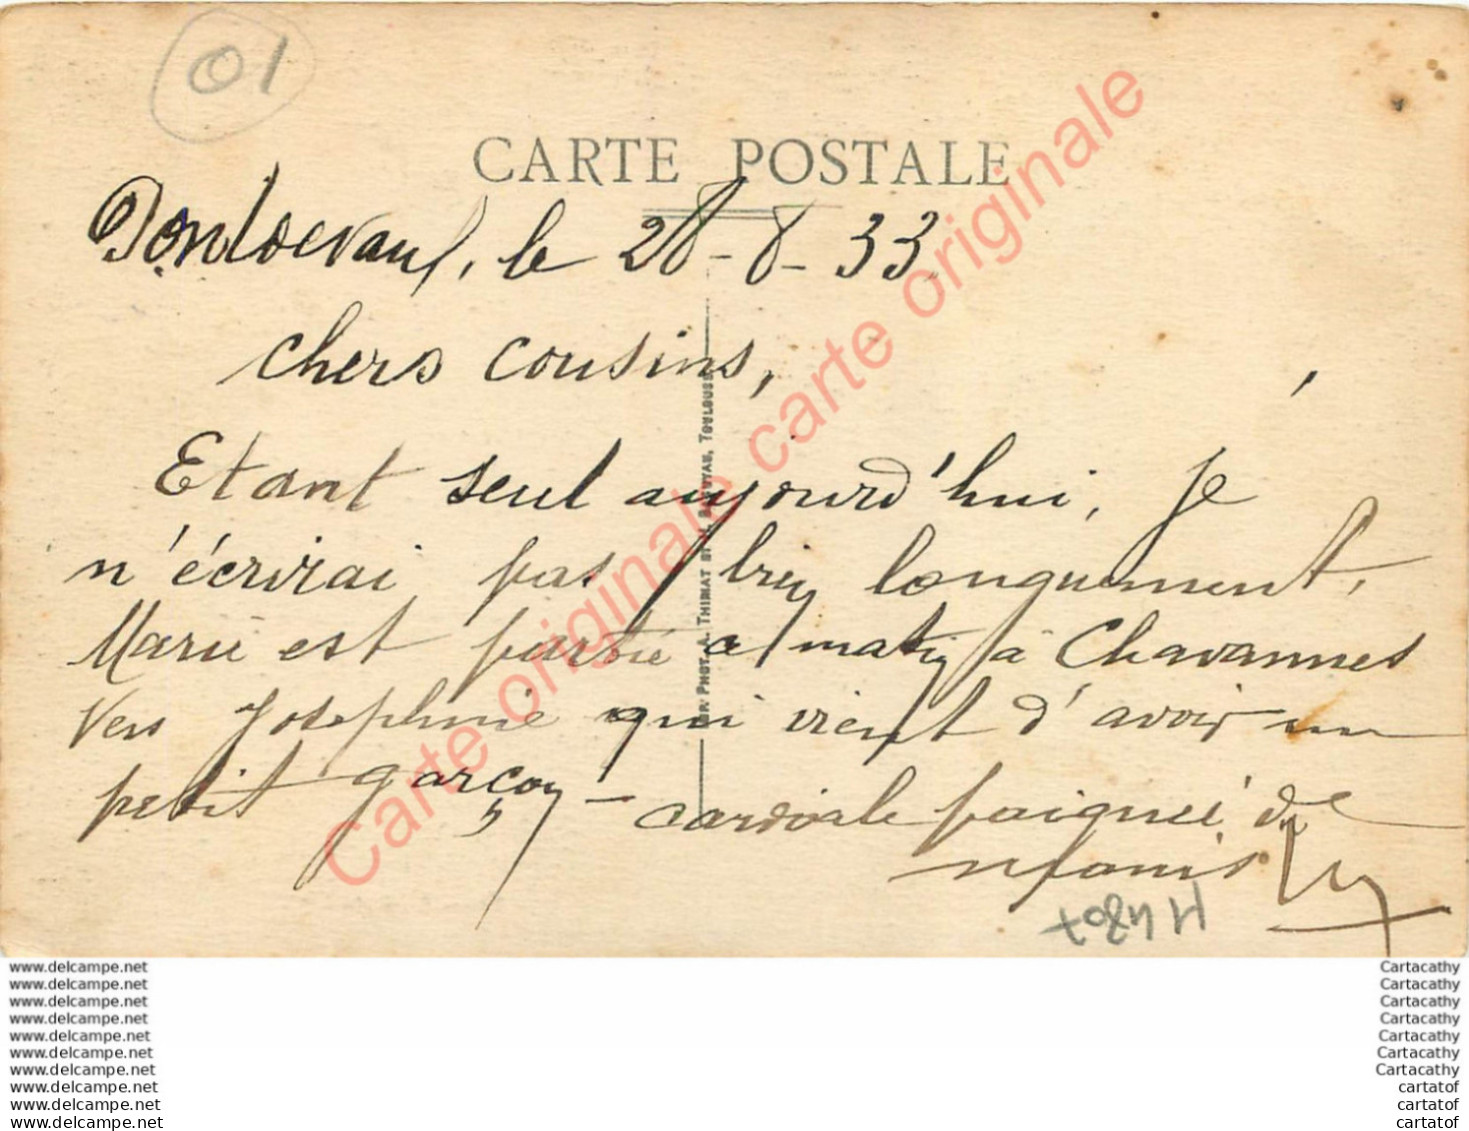 01
CARTE POSTALE
le 28-8-33
chers cousins,
Etant seul aujourd'hui, je
n'écrirai pas bien longuement,
Marie est partie ce matin à Chavannes
vers Josephine qui vient d'avoir un
petit garçon - cordiale poignée de
Carte originale carte originale
www.delcampe.net
www.delcampe.net
www.delcampe.net
www.delcampe.net
www.delcampe.net
www.delcampe.net
www.delcampe.net
www.delcampe.net
www.delcampe.net
www.delcampe.net
Cartacathy
Cartacathy
Cartacathy
Cartacathy
Cartacathy
Cartacathy
Cartacathy
cartatof
cartatof
cartatof